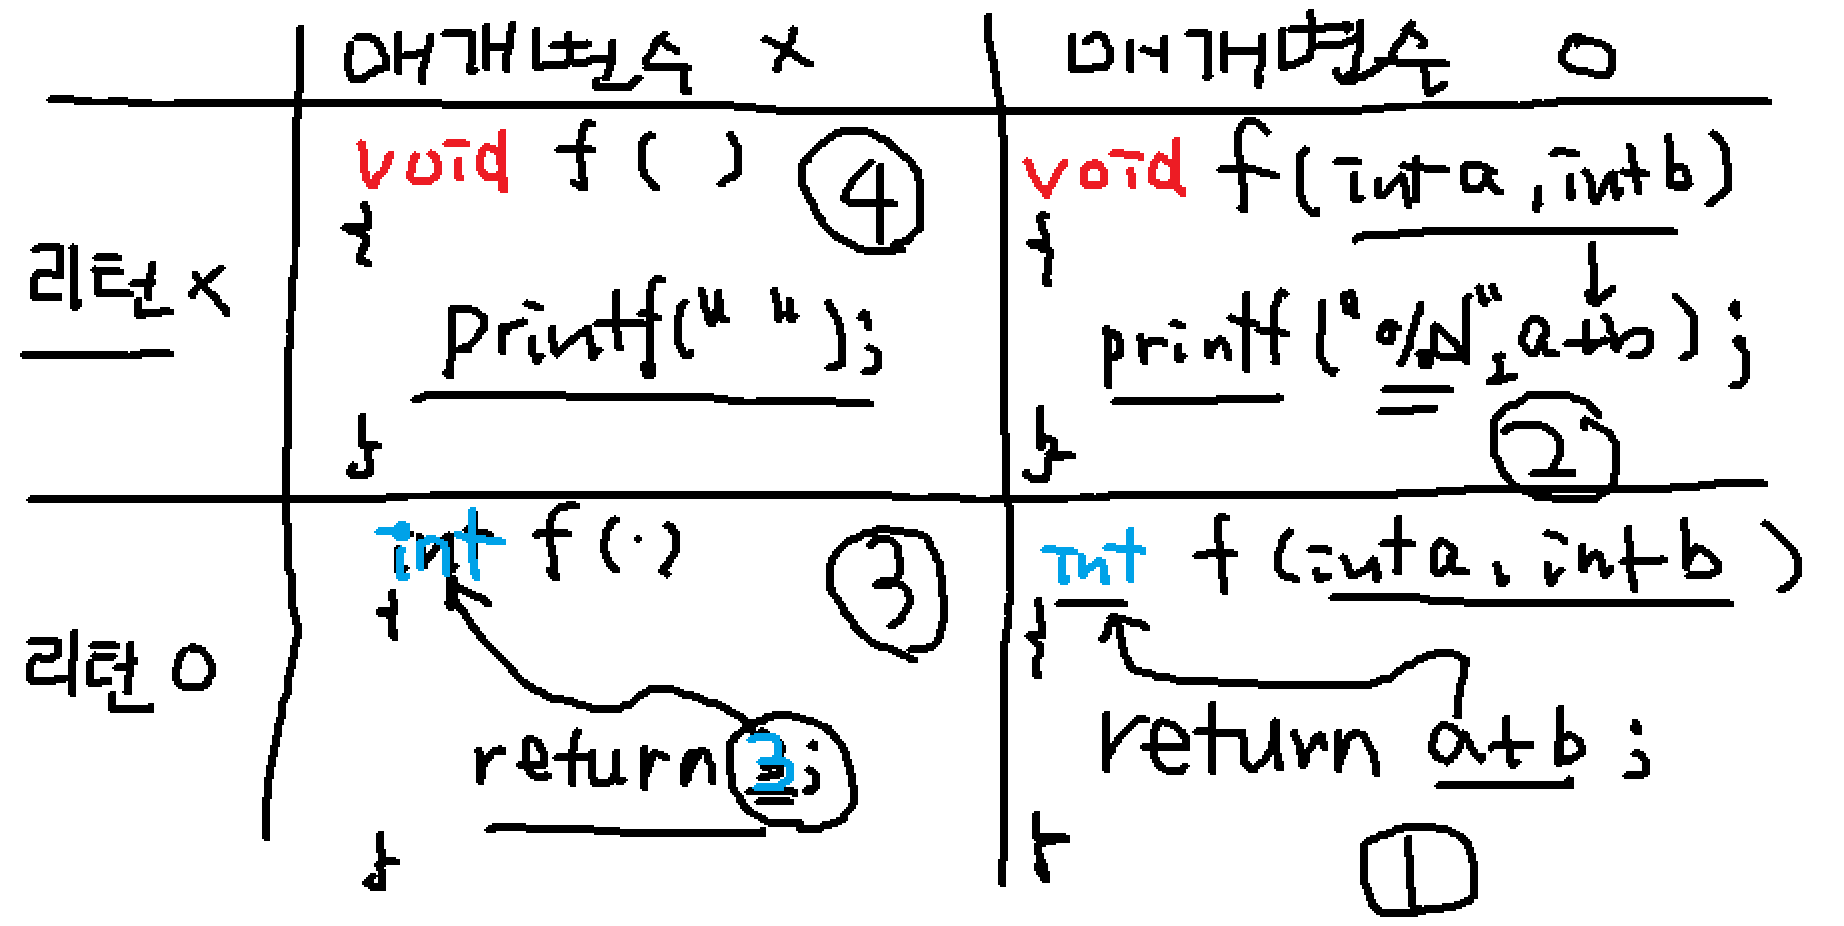 매개변수 X
매개변수 O
리턴 X
void f ( ) ④
{
printf(" ");
}
void f(int a, int b)
{
printf("%d", a+b);
}
②
리턴 O
int f(·) ③
{
return 3;
}
int f(int a, int b)
{
return a+b;
}
①